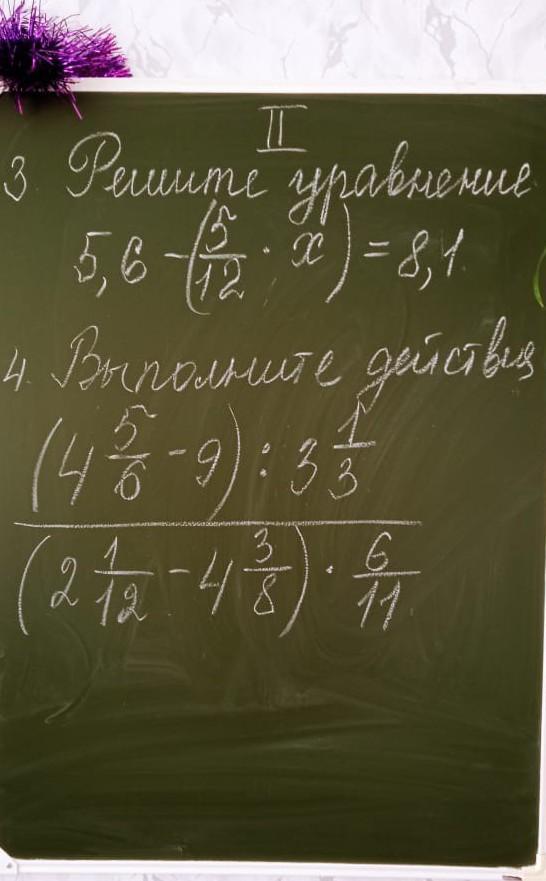 II
3. Решите уравнение
5,6 - (5/12 · x) = 8,1.
4. Выполните действия
(4 5/6 - 9) : 3 1/3
(2 1/12 - 4 3/8) · 6/11